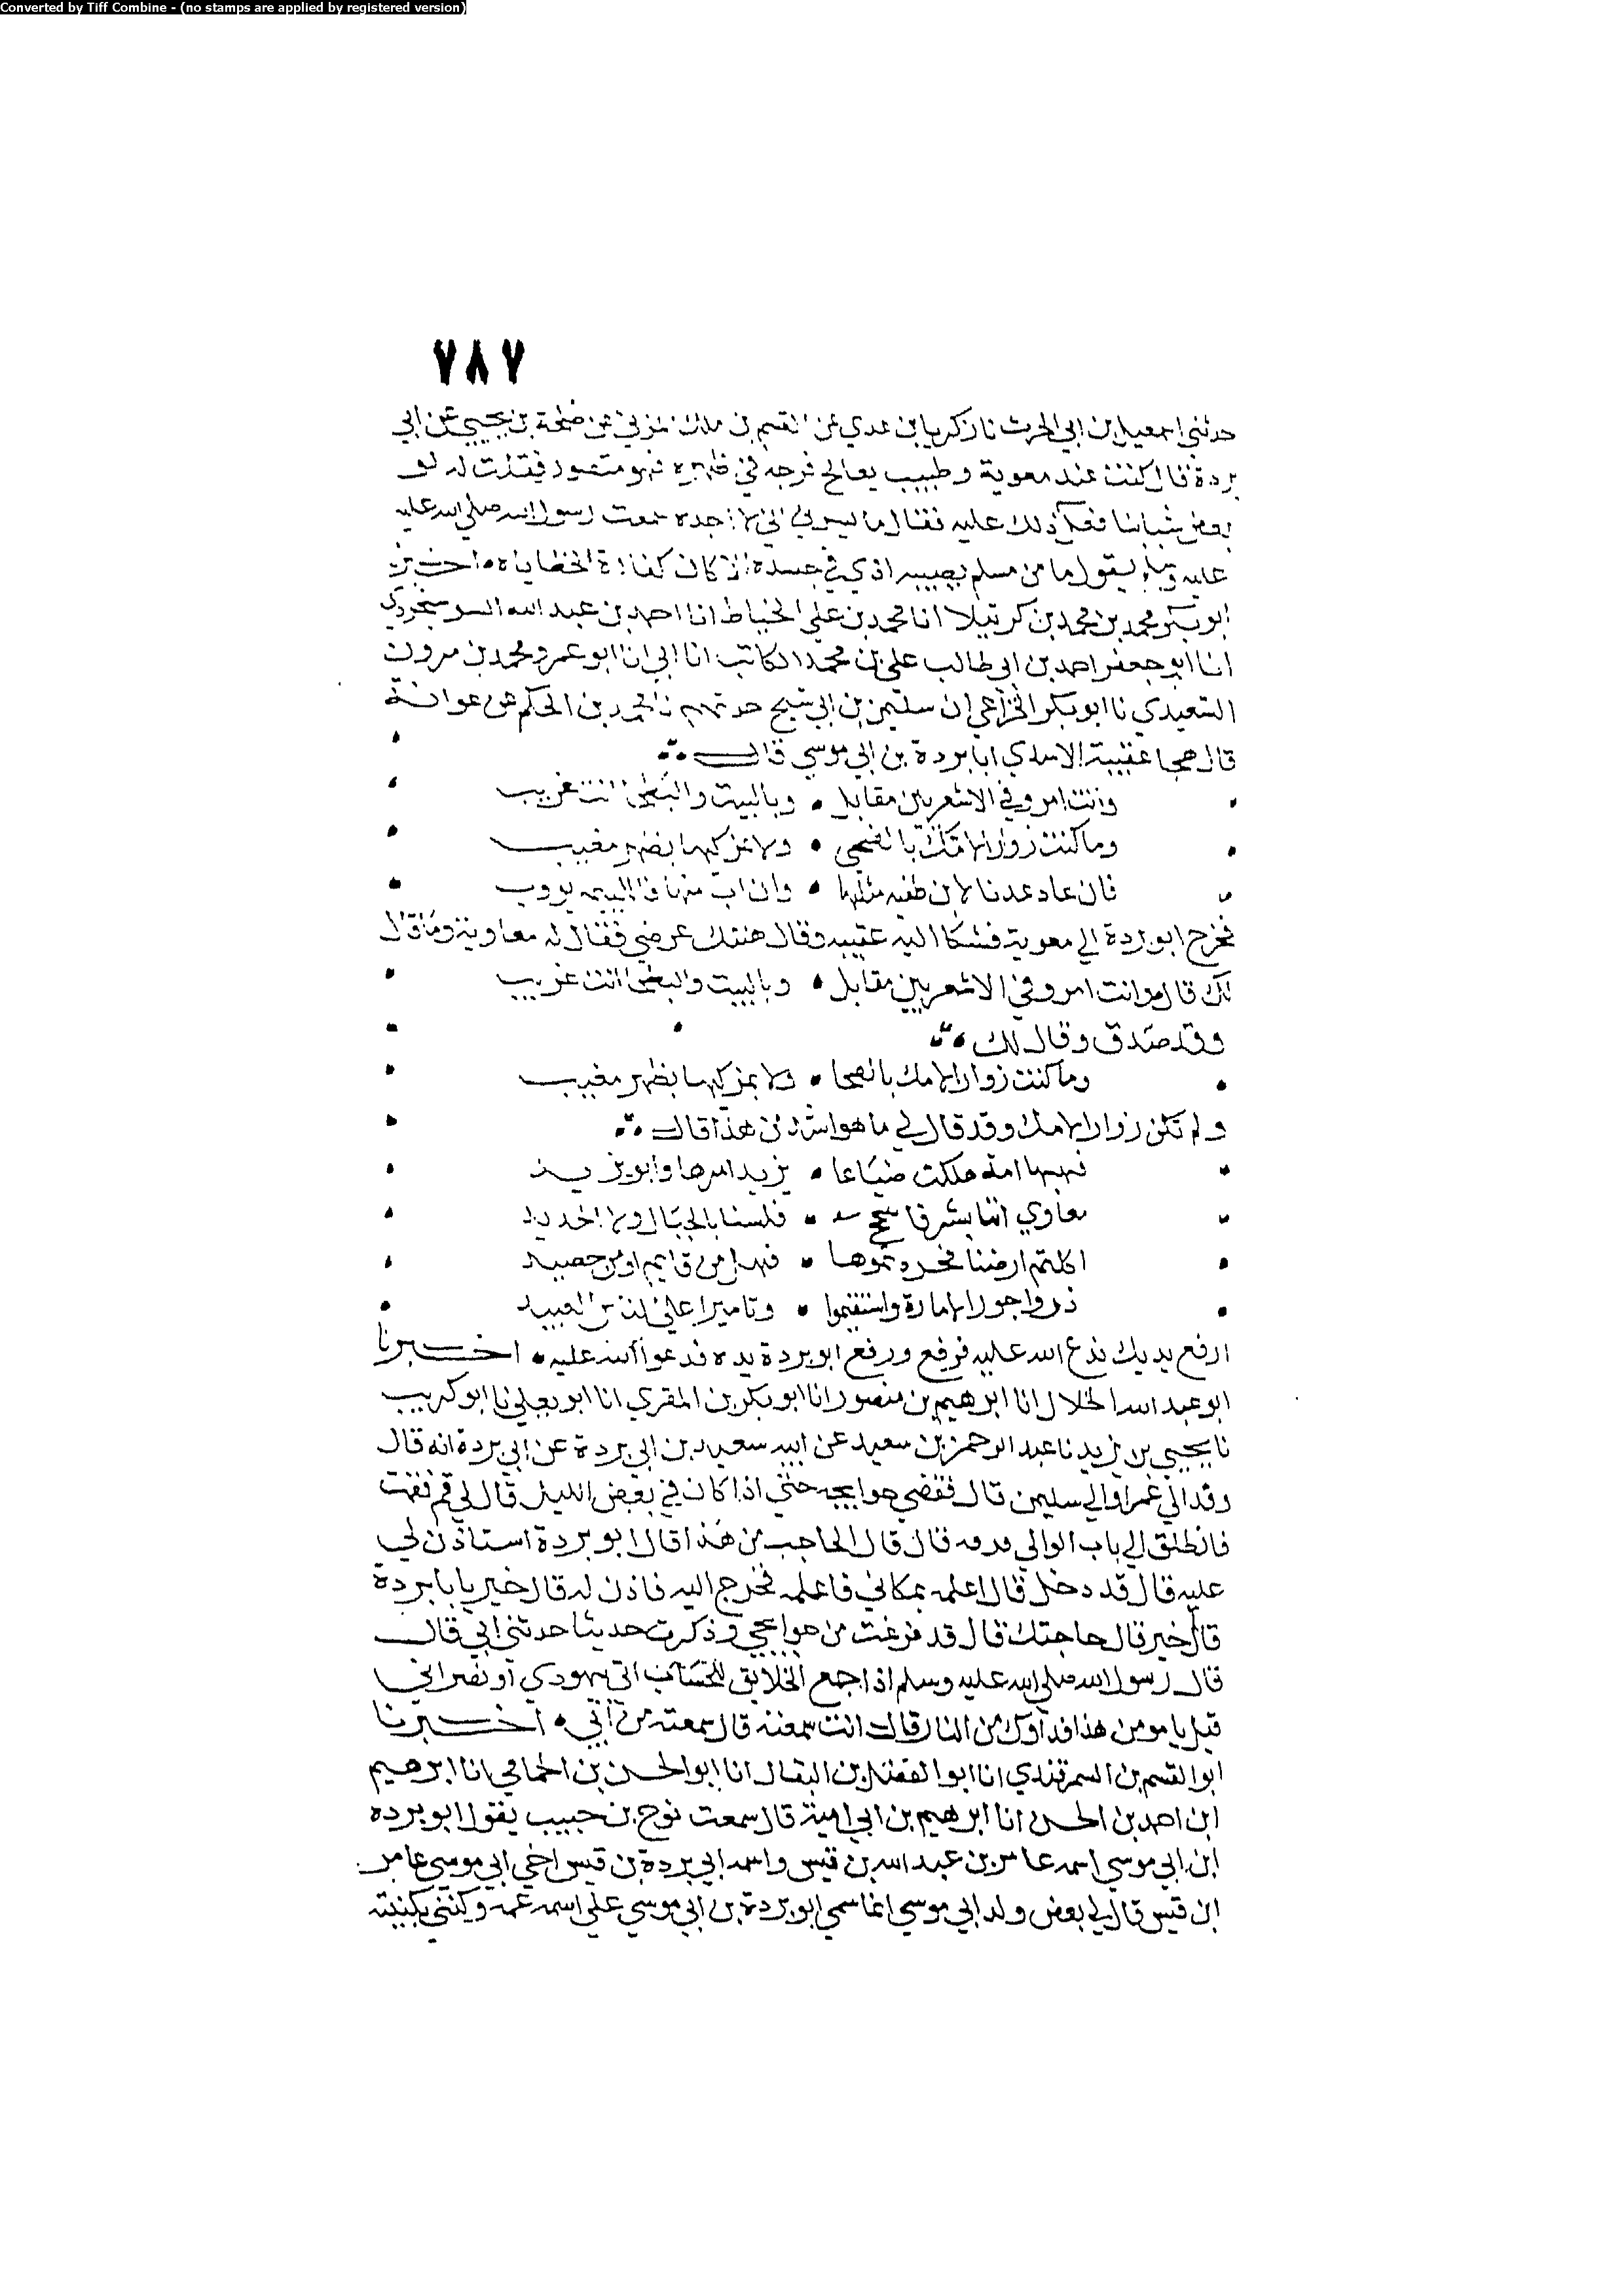 Converted by Tiff Combine - (no stamps are applied by registered version)
٧٨٧
حدثني اسمعيل بن ابي الحرث نا زكريا بن عدي عن القسم بن مالك المزني عن طلحة بن يحيي عن ابي
بردة قال كنت عند معوية وطبيب يعالج قرحه في ظهره فهو متضور فقلت له لو
بعض شبابنا فعل ذلك عليه فقال ما يسرني اني لا اجده سمعت رسول الله صلي الله عليه
عليه يقول ما من مسلم يصيبه اذي في جسده الا كان كفارة لخطاياه • اخبرنا
ابو بكر محمد بن محمد بن كرتيلا انا محمد بن علي الخياط انا احمد بن عبد الله السوسنجردي
انا ابو جعفر احمد بن ابي طالب علي بن محمد الكاتب انا ابي انا ابو عمرو محمد بن مرون
السعيدي نا ابو بكر الخزاعي ان سليمن بن ابي شيخ حدثهم نا محمد بن الحكم عن عوانة
قال هجا عقيبة الاسدي ابا بردة بن ابي موسي قال
وانت امرو في الاشعريين مقابل • وبالبيت والبطحا انت غريب
وما كنت زوار الامك بالضحي • ولا بمزكيها بظهر مغيب
فان عاد عدنا لابن طفيه مثلها • وان اب منها فاليه يووب
فخرج ابو بردة الي معوية فشكا اليه عقيبه وقال هتك عرضي فقال له معاوية وما قال
لك قال وانت امرو في الاشعريين مقابل • وبالبيت والبطحا انت غريب
وقد صدق وقال لك
وما كنت زوار الامك بالضحا • ولا بمزكيها بظهر مغيب
ولم تكن زوار الامك وقد قال لي ما هو اشد من هذا قال
فهبها امة هلكت ضياعا • يزيد اميرها وابو يزيد
معاوي اننا بشر فاسجح • فلسنا بالجبال ولا الحديد
اكلتم ارضنا فجردتموها • فهل من قايم او من حصيد
ذروا جور الامارة واستقيموا • وتاميرا علي الناس العبيد
ارفع يديك ندع الله عليه فرفع ورفع ابو بردة يده فدعوا الله عليه • اخبرنا
ابو عبد الله الخلال انا ابرهيم بن منصور انا ابو بكر بن المقري انا ابو يعلي نا ابو كريب
نا يحيي بن يزيد نا عبد الرحمن بن سعيد عن ابيه سعيد بن ابي بردة عن ابي بردة انه قال
وفد الي عمر او الي سليمن قال فقضي حوايجه حتي اذا كان في بعض الليل قال لي قم فقمت
فانطلق الي باب الوالي فدقه قال قال الحاجب من هذا قال ابو بردة استاذن لي
عليه قال قد دخل قال اعلمه بمكاني فاعلمه فخرج اليه فاذن له قال خير يابا بردة
قال خير قال حاجتك قال قد فرغت من حوايجي وذكرت حديثا حدثني ابي قال
قال رسول الله صلي الله عليه وسلم اذا جمع الخلايق للحساب اتي يهودي او نصراني
قيل يا مومن هذا فداوك من النار قال انت سمعته قال سمعته من ابي • اخبرنا
ابو القسم بن السمرقندي انا ابو الفضل بن البقال انا ابو الحسن بن الحمامي انا ابرهيم
ابن احمد بن الحسن انا ابرهيم بن ابي امية قال سمعت نوح بن حبيب يقول ابو برده
ابن ابي موسي اسمه عامر بن عبد الله بن قيس واسم ابي بردة بن قيس اخي ابي موسي عامر
ابن قيس قال لي بعض ولد ابي موسي انما سمي ابو بردة بن ابي موسي علي اسم عمه وكني بكنيته